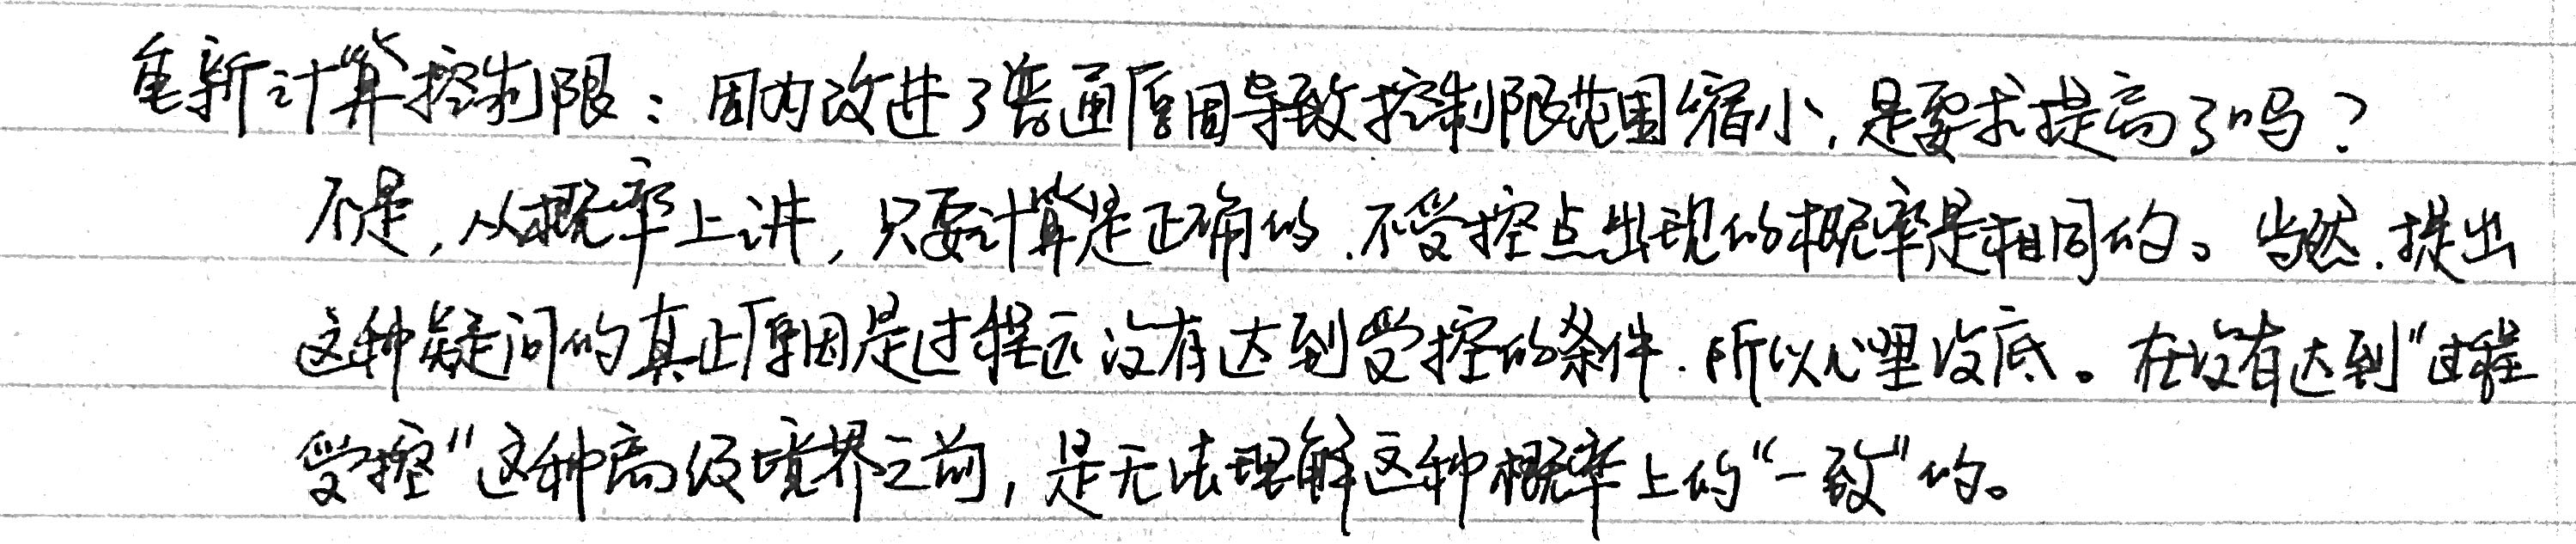 重新计算控制限：因为改进了普通原因导致控制限范围缩小，是要求提高了吗？
不是，从概率上讲，只要计算是正确的，不受控点出现的概率是相同的。当然，提出
这种疑问的真正原因是过程还没有达到受控的条件，所以心里没底。在没有达到"过程
受控"这种高级境界之前，是无法理解这种概率上的"一致"的。